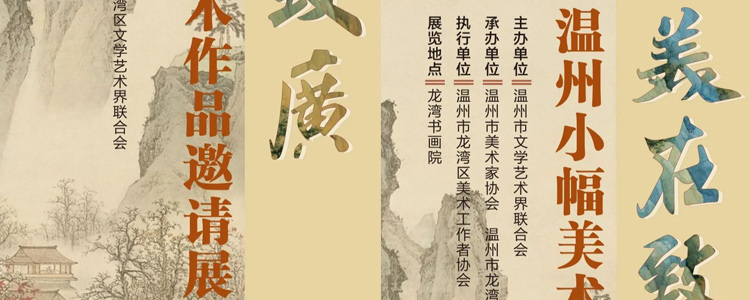 美在致
温州小幅美术
主办单位 温州市文学艺术界联合会
承办单位 温州市美术家协会 温州市龙湾
执行单位 温州市龙湾区美术工作者协会
展览地点 龙湾书画院
廣
术作品邀请展
湾区文学艺术界联合会